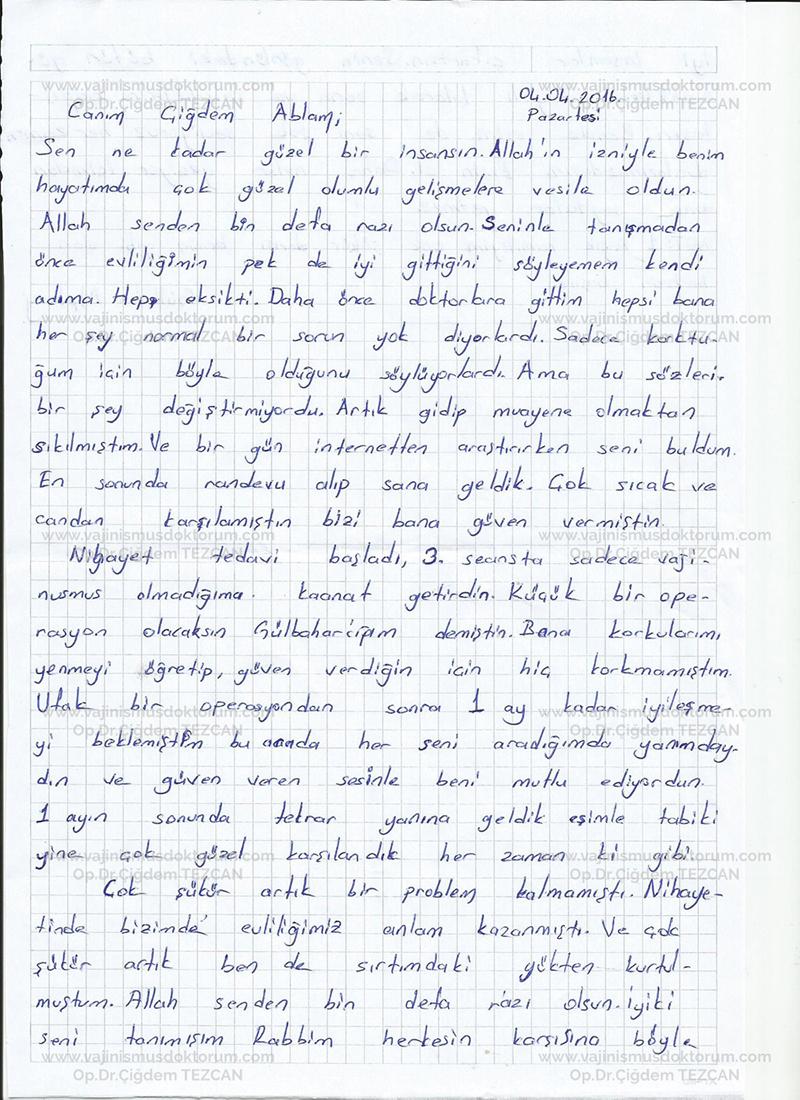 04.04.2016
Pazartesi
Canım Çiğdem Ablam;
Sen ne kadar güzel bir insansın. Allah'ın izniyle benim
hayatımda çok güzel olumlu gelişmelere vesile oldun.
Allah senden bin defa razı olsun. Seninle tanışmadan
önce evliliğimin pek de iyi gittiğini söyleyemem kendi
adıma. Hep eksikti. Daha önce doktorlara gittim hepsi bana
her şey normal bir sorun yok diyorlardı. Sadece korktu-
ğum için böyle olduğunu söylüyorlardı. Ama bu sözleri.
bir şey değiştirmiyordu. Artık gidip muayene olmaktan
sıkılmıştım. Ve bir gün internetten araştırırken seni buldum.
En sonunda randevu alıp sana geldik. Çok sıcak ve
candan karşılamıştın bizi bana güven vermiştin.
Nihayet tedavi başladı, 3. seansta sadece vaji-
nusmus olmadığıma. kaanat getirdin. Küçük bir ope-
rasyon olacaksın Gülbaharcığım demiştin. Bana korkularımı
yenmeyi öğretip, güven verdiğin için hiç korkmamıştım.
Ufak bir operasyondan sonra 1 ay kadar iyileşme-
yi beklemiştim bu arada her seni aradığımda yanımday-
dın ve güven veren sesinle beni mutlu ediyordun.
1 ayın sonunda tekrar yanına geldik eşimle tabiki
yine çok güzel karşılandık her zaman ki gibi.
Çok şükür artık bir problem kalmamıştı. Nihaye-
tinde bizimde evliliğimiz anlam kazanmıştı. Ve çok
şükür artık ben de sırtımdaki yükten kurtul-
muştum. Allah senden bin defa razı olsun. İyiki
seni tanımışım Rabbim herkesin karşısına böyle
www.vajinismusdoktorum.com
Op.Dr.Çiğdem TEZCAN